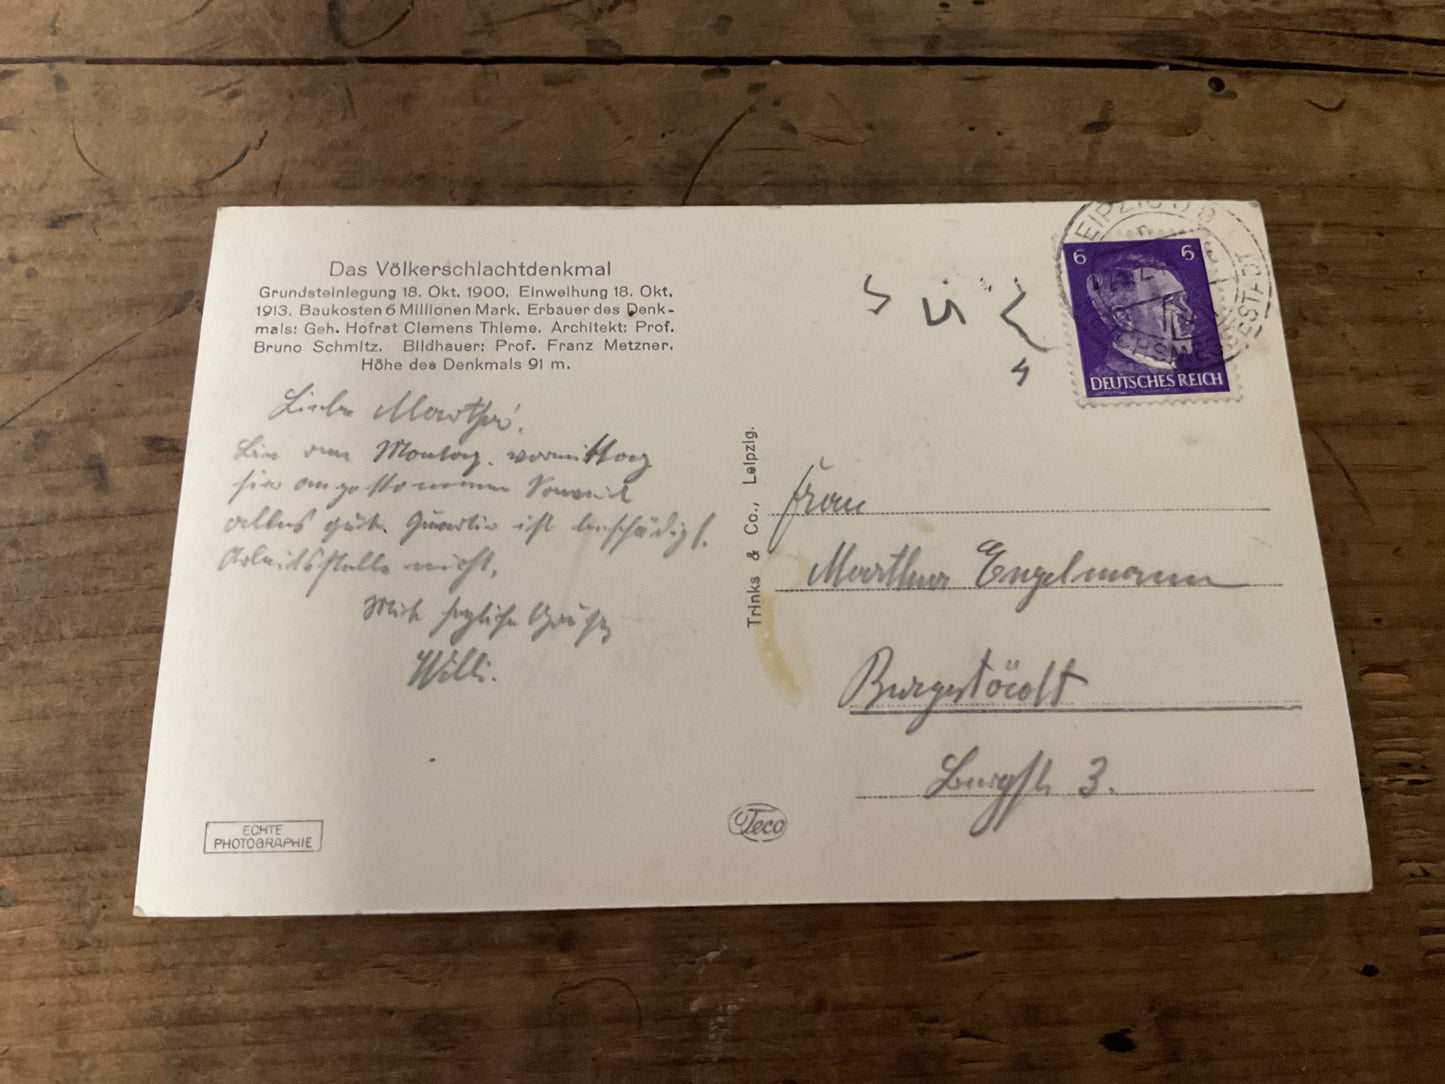 Das Völkerschlachtdenkmal
Grundsteinlegung 18. Okt. 1900. Einweihung 18. Okt.
1913. Baukosten 6 Millionen Mark. Erbauer des Denk-
mals: Geh. Hofrat Clemens Thieme. Architekt: Prof.
Bruno Schmitz. Bildhauer: Prof. Franz Metzner.
Höhe des Denkmals 91 m.
Liebe Martha!
Bin am Montag vormittag
hier angekommen
alles gut. Quartier ist beschädigt.
Arbeitsstelle nicht.
Mit herzliche Grüße
Willi.
ECHTE
PHOTOGRAPHIE
Trinks & Co., Leipzig.
Teco
LEIPZIG
6 6
DEUTSCHES REICH
Frau
Martha Engelmann
Burgstädt
Burgstr. 3.